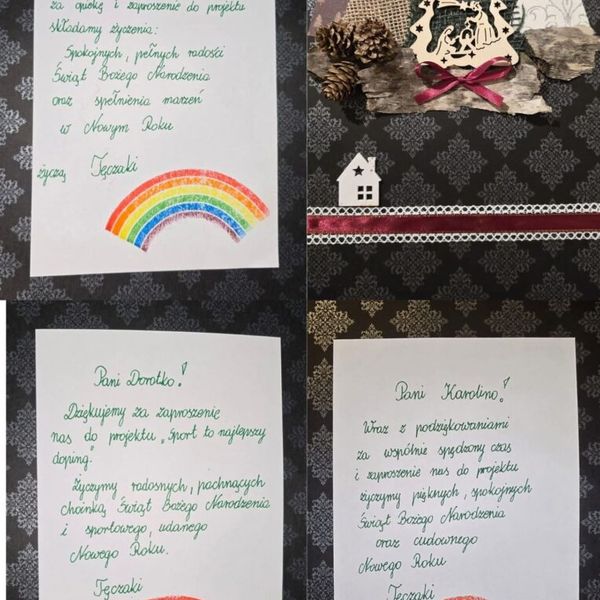 za opiekę i zaproszenie do projektu
składamy życzenia:
Spokojnych, pełnych radości
Świąt Bożego Narodzenia
oraz spełnienia marzeń
w Nowym Roku
życzą Tęczaki
Pani Dorotko!
Dziękujemy za zaproszenie
nas do projektu „Sport to najlepszy
doping."
Życzymy radosnych, pachnących
choinką, Świąt Bożego Narodzenia
i sportowego, udanego
Nowego Roku.
Tęczaki
Pani Karolino!
Wraz z podziękowaniami
za wspólnie spędzony czas
i zaproszenie nas do projektu
życzymy pięknych, spokojnych
Świąt Bożego Narodzenia
oraz cudownego
Nowego Roku
Tęczaki